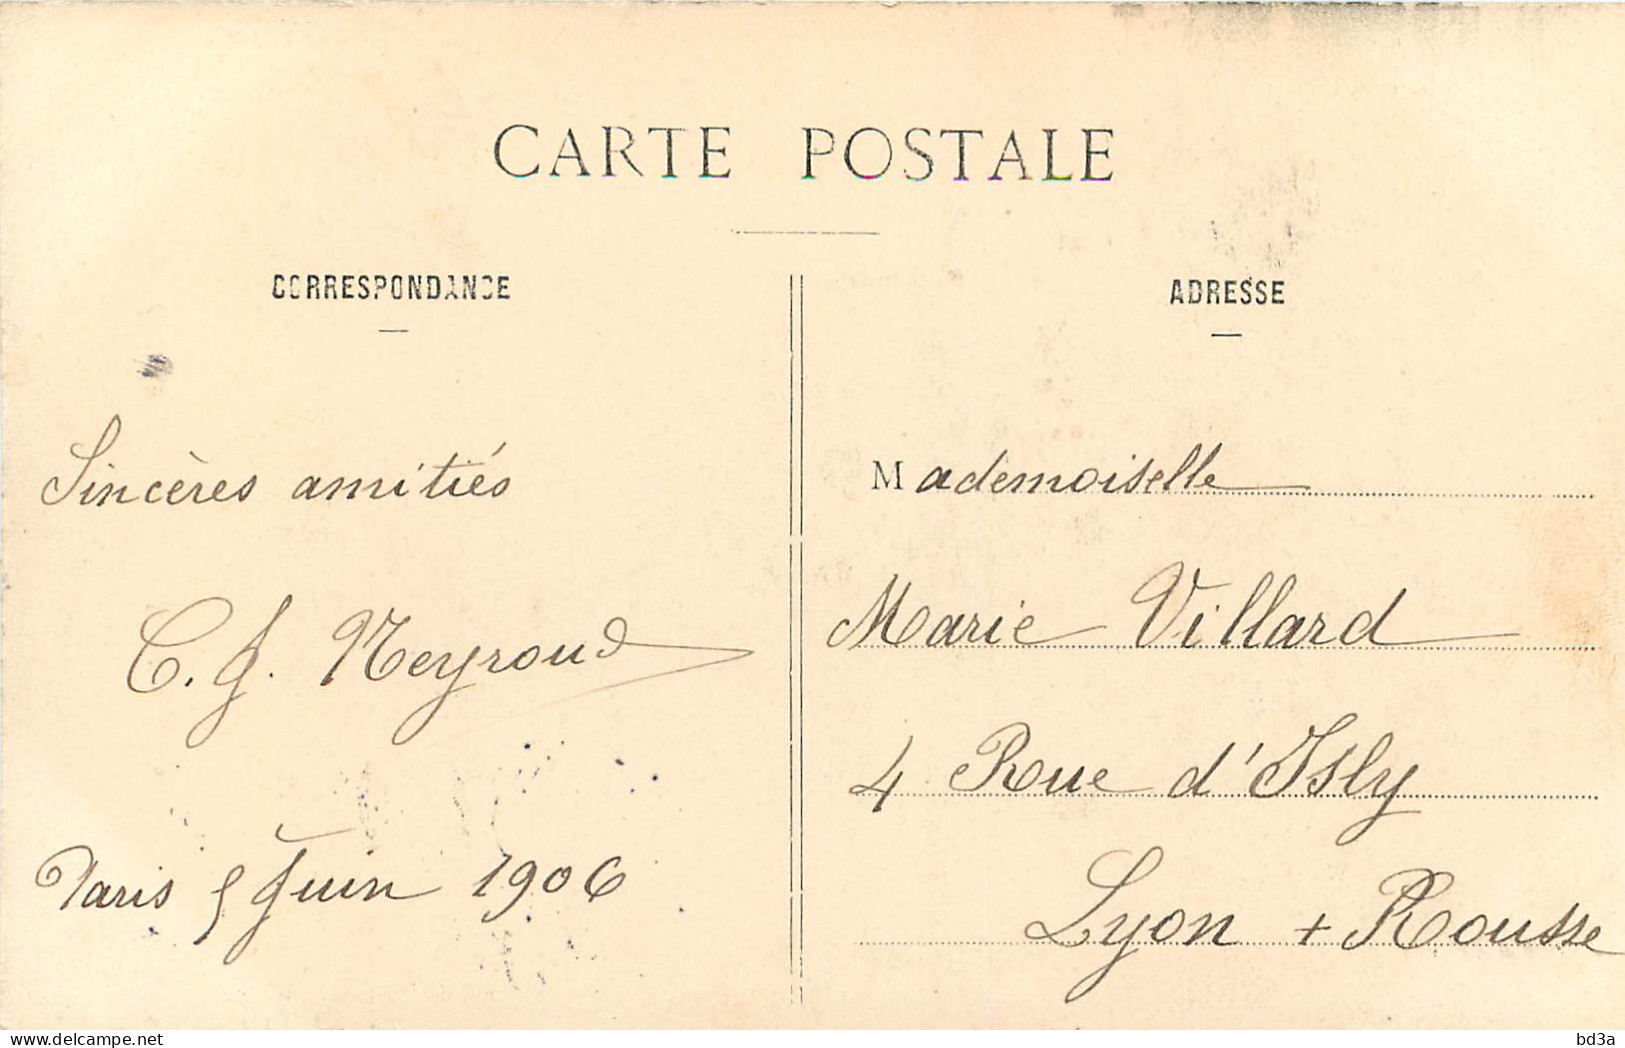 CARTE POSTALE
CORRESPONDANCE
Sincères amitiés
C. J. Neyroud
Paris 5 Juin 1906
ADRESSE
Mademoiselle
Marie Villard
4 Rue d'Isly
Lyon + Rousse
delcampe.net
bd3a